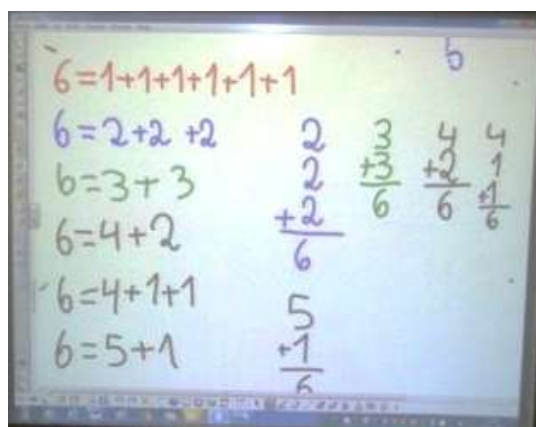 6
6=1+1+1+1+1+1
6=2+2+2
6=3+3
6=4+2
6=4+1+1
6=5+1
2
2
+2
6
3
+3
6
4
+2
6
4
1
+1
6
5
+1
6